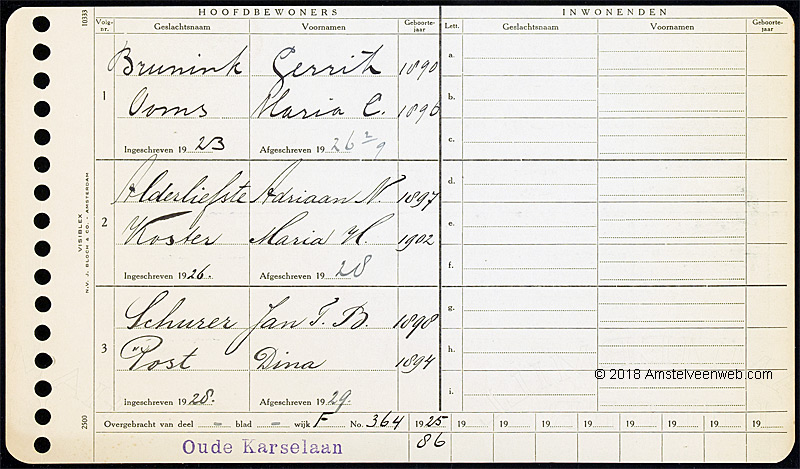 HOOFDBEWONERS INWONENDEN
Volg-nr. Geslachtsnaam Voornamen Geboorte-jaar Lett. Geslachtsnaam Voornamen Geboorte-jaar
10333
1
Brunink Gerrit 1890 a.
Ooms Maria C. 1896 b.
c.
Ingeschreven 1923 Afgeschreven 1926 2/9
2
Alderliefste Adriaan N. 1897 d.
Koster Maria H. 1902 e.
Ingeschreven 1926. Afgeschreven 1928 f.
3
Schurer Jan T. B. 1898 g.
Post Dina 1894 h.
Ingeschreven 1928. Afgeschreven 1929. i.
VISIBLEX
N.V. J. BLOCH & CO. - AMSTERDAM
2500
© 2018 Amstelveenweb.com
Overgebracht van deel - blad - wijk F No. 364 1925 19 19 19 19 19 19 19 19
Oude Karselaan 86